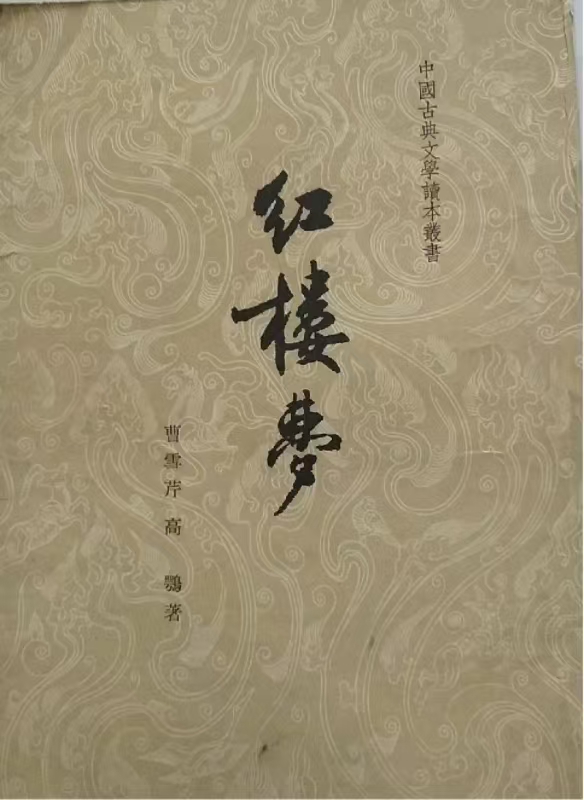 中國古典文學讀本叢書
红楼夢
曹雪芹高 鶚著